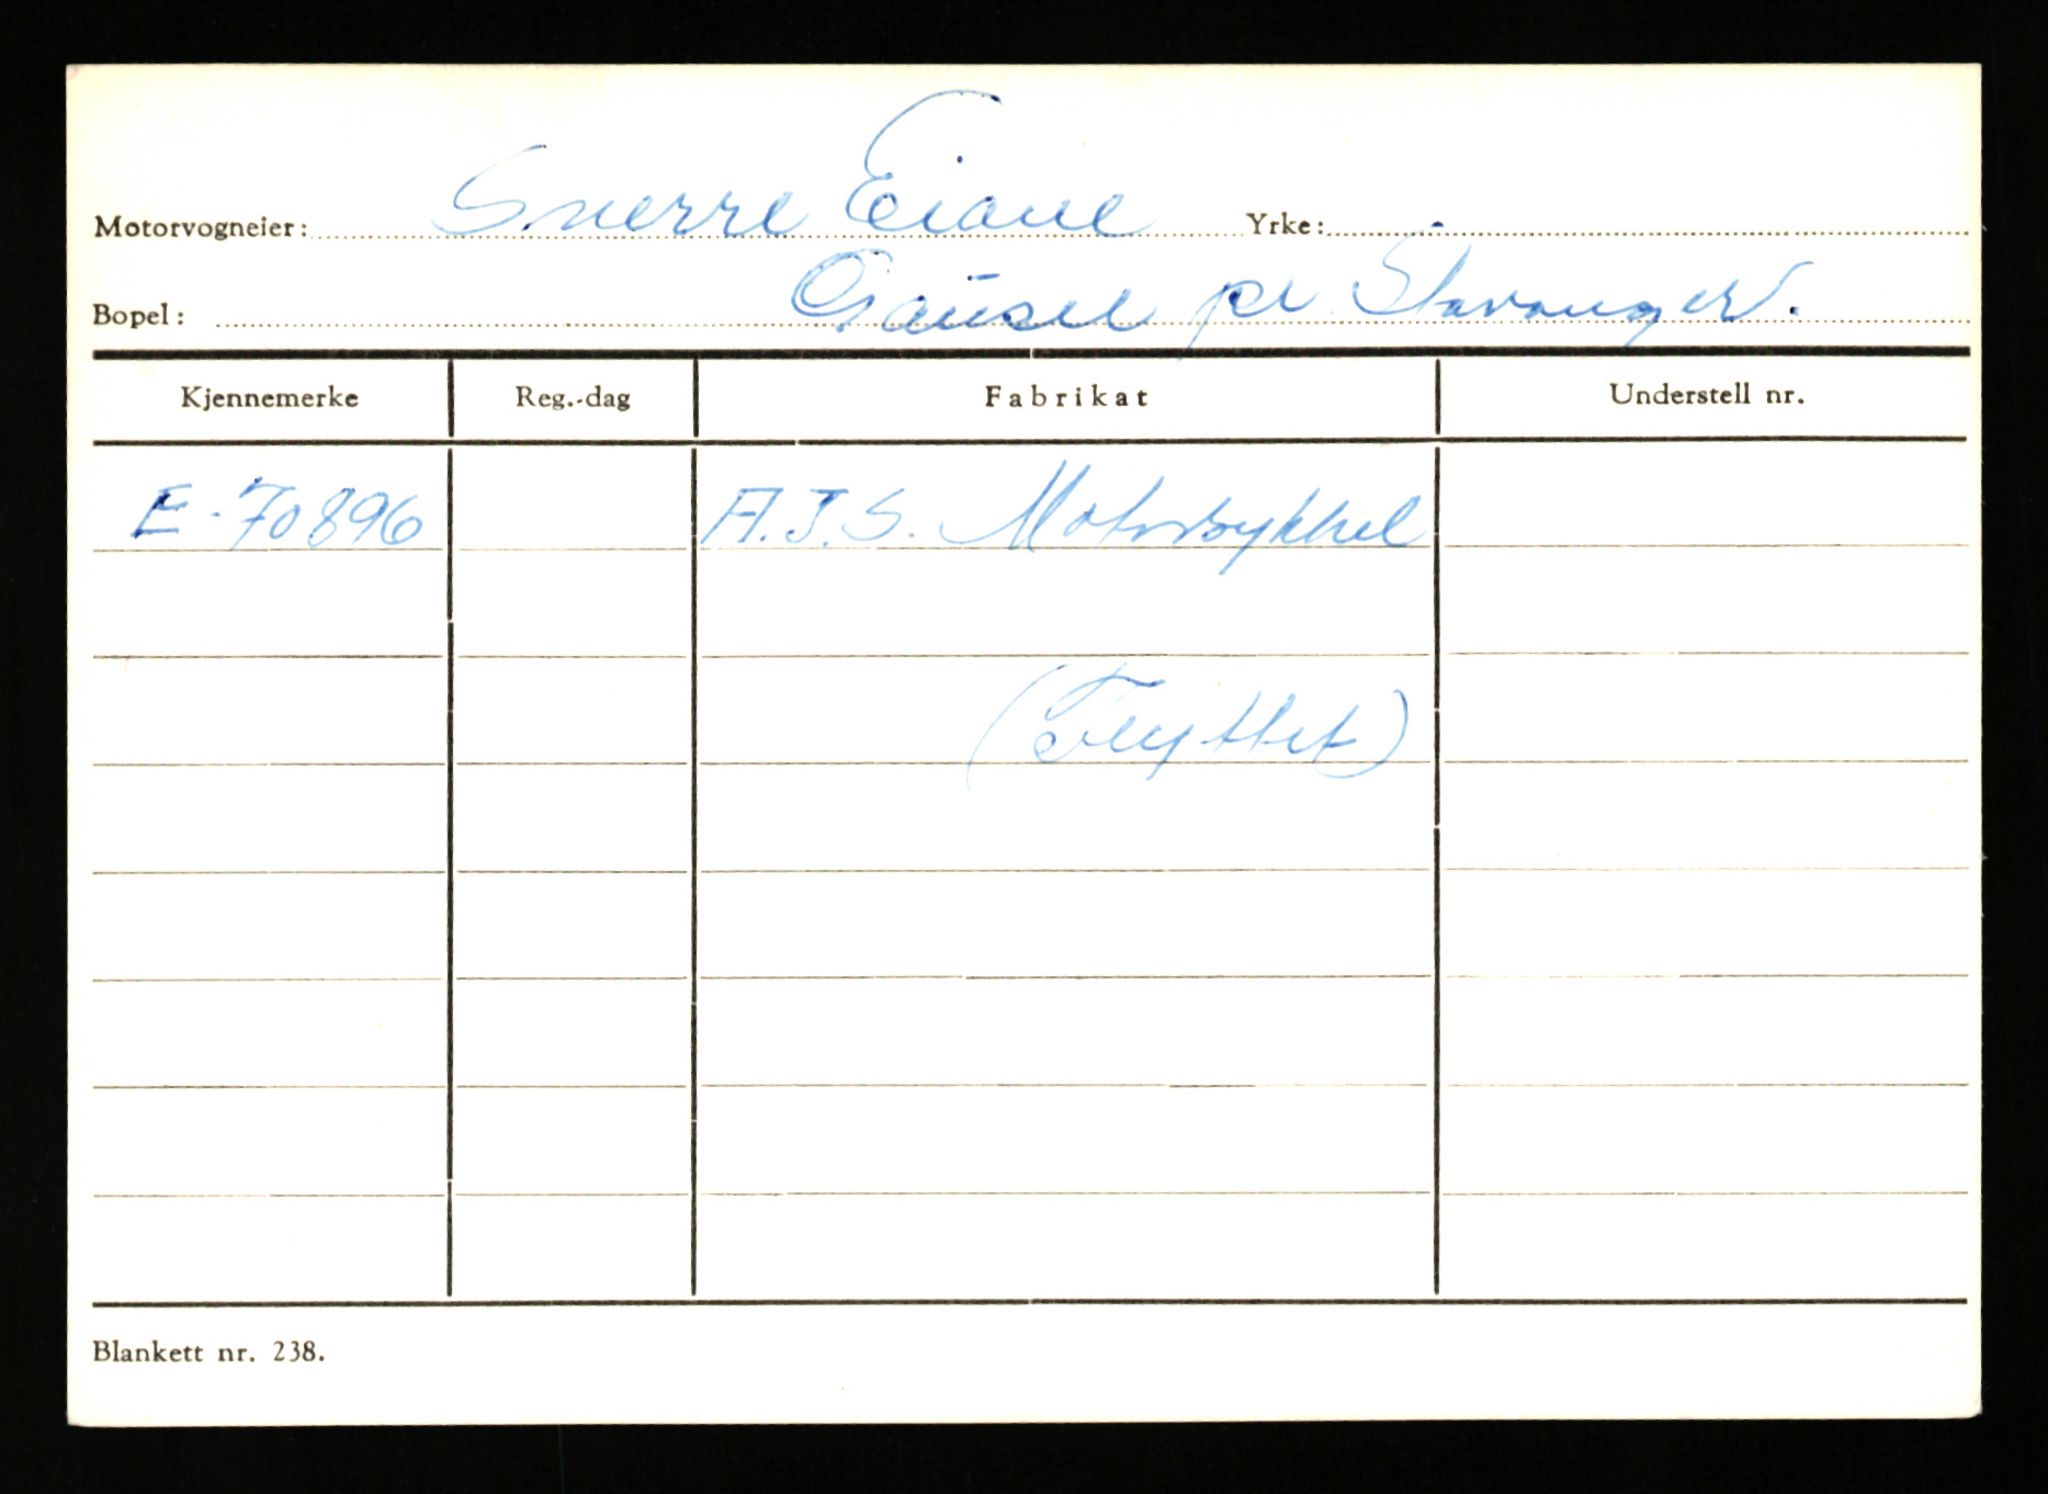 Motorvogneier: Sverre Eiane Yrke:
Bopel: Gausel pr. Stavanger.
Kjennemerke Reg.-dag Fabrikat Understell nr.
E-70896 A.J.S. Motorsykkel
(Flyttet)
Blankett nr. 238.